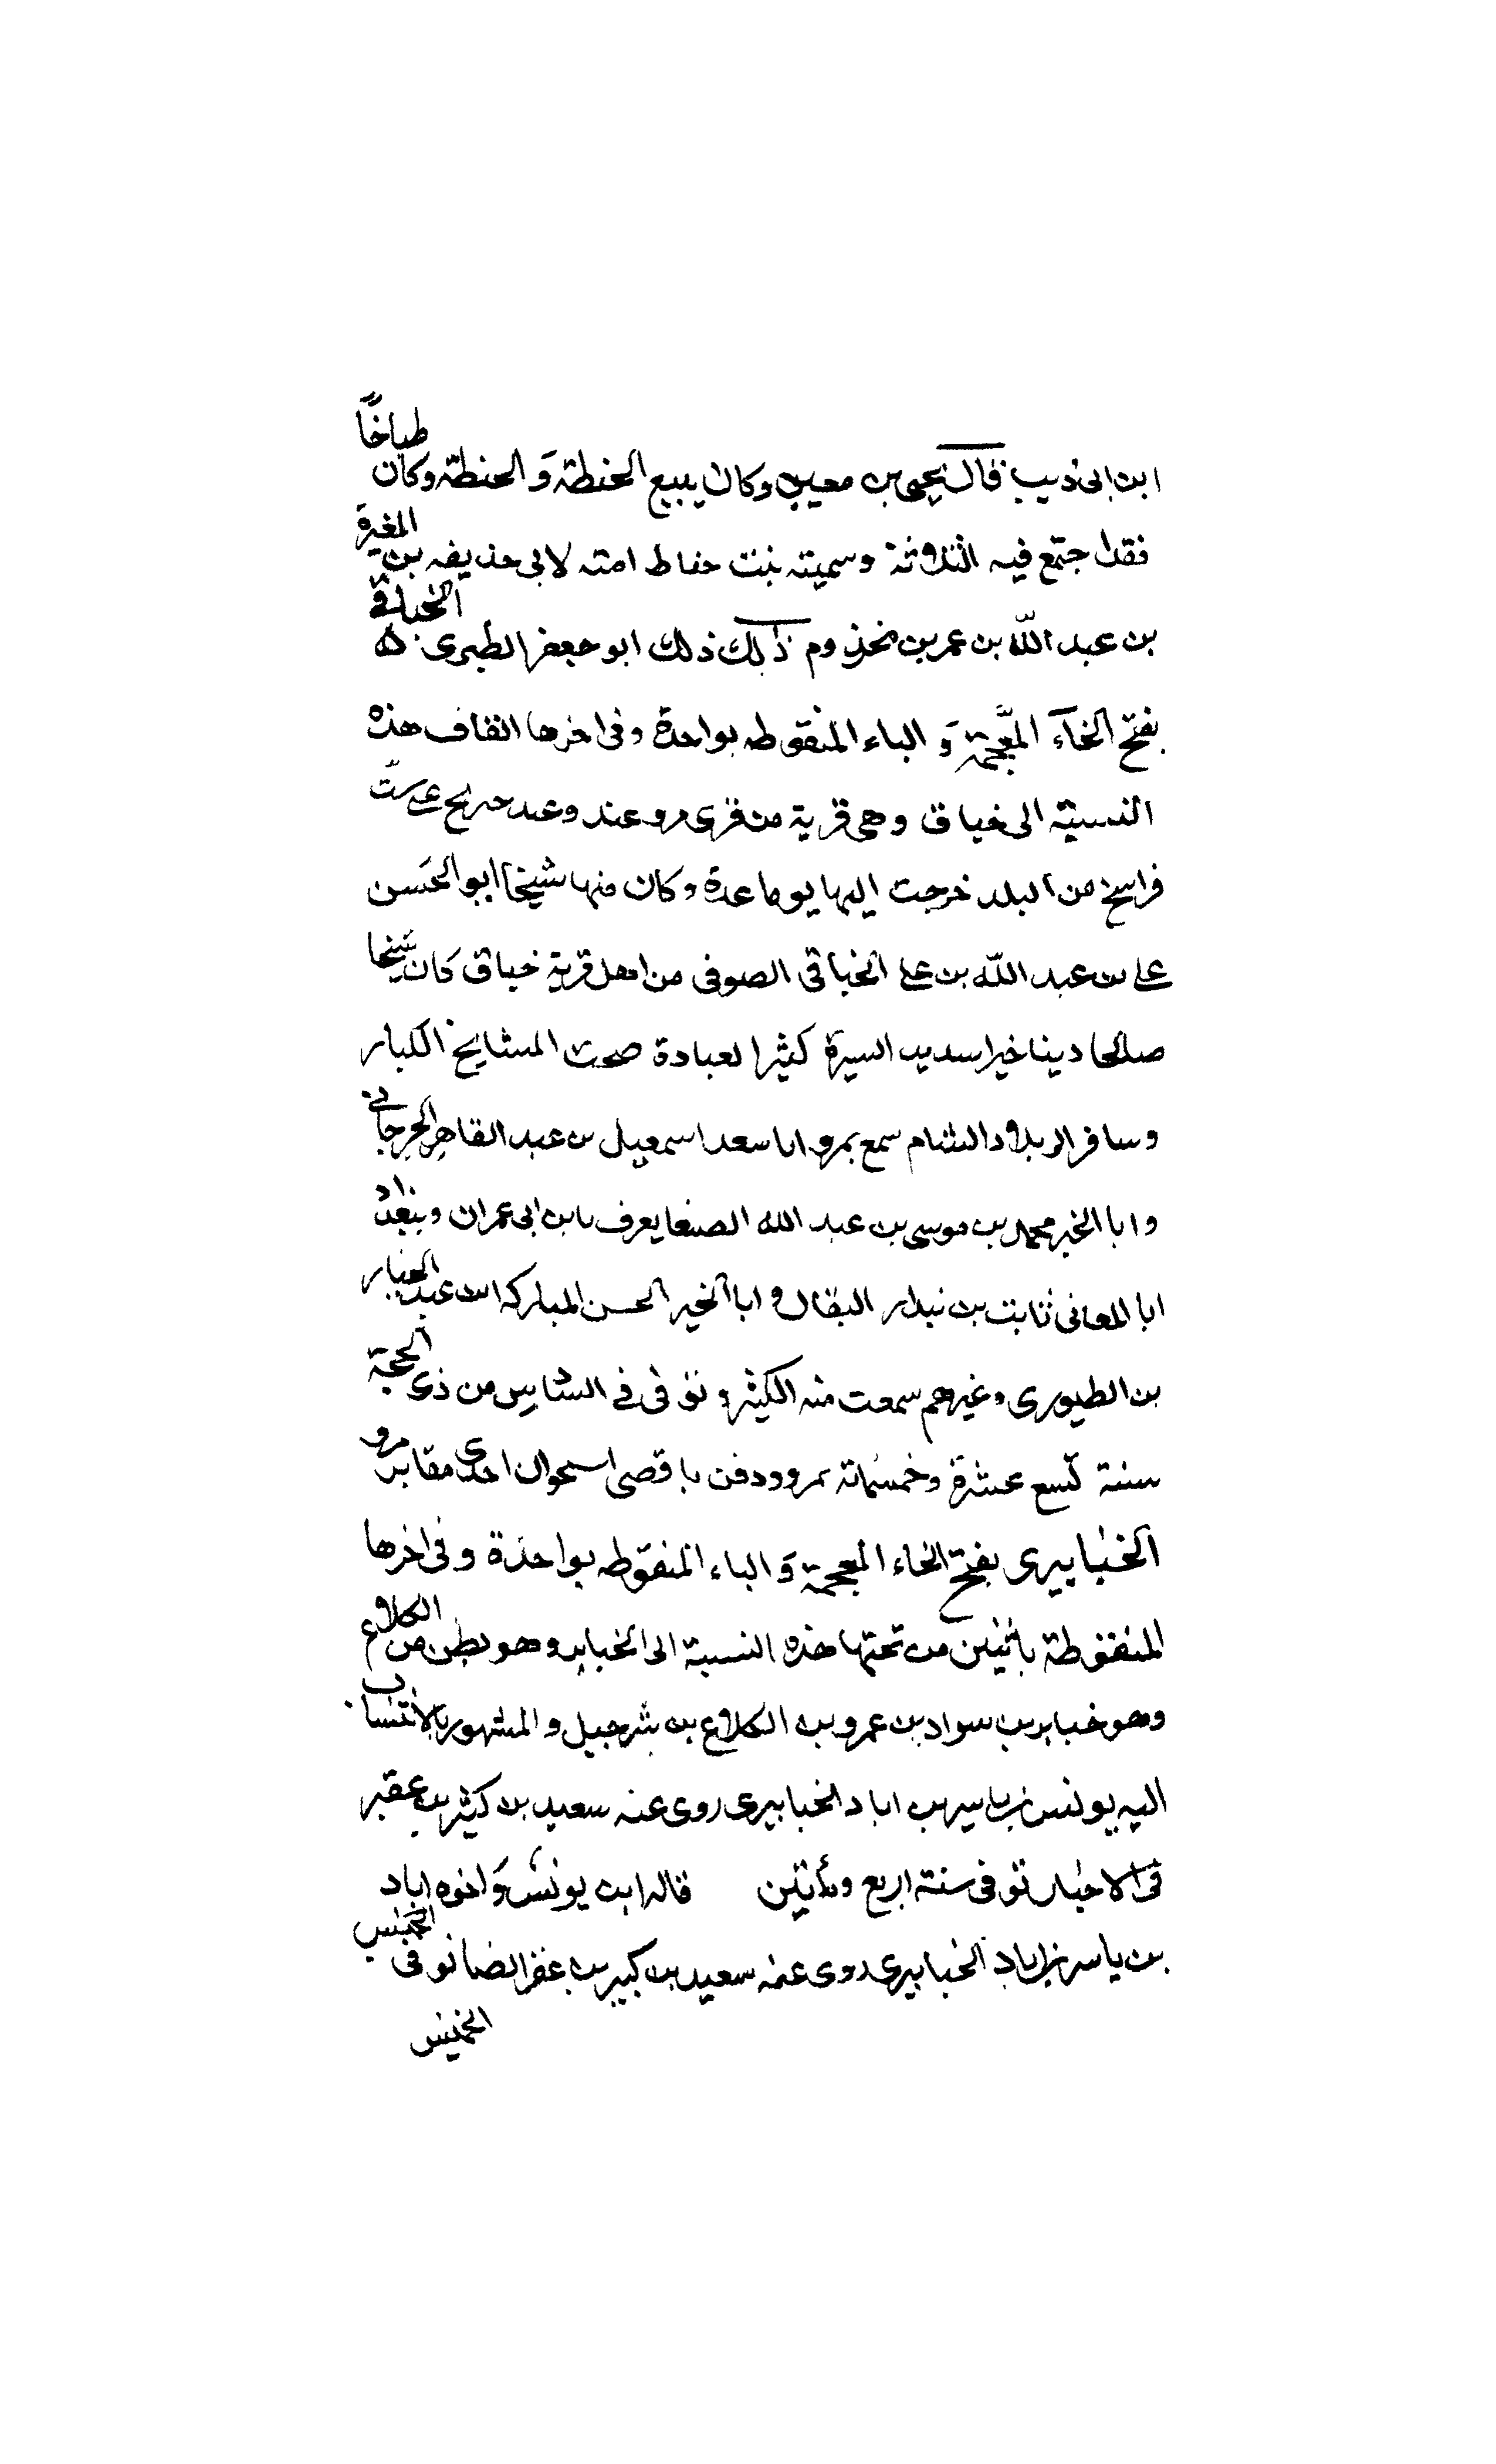 ابن ابى ذيب قال يحيى بن معين وكان يبيع الخنطة وَ الحنطة وكان طباخًا
فقد اجتمع فيه الثلاثة وسميته بنت حفاط امته لابى حذيفه بن المغيرة
بن عبد اللّه بن عمر بن مخزوم ذلك ذلك ابو جعفر الطبرى ه الخباقى
بفتح الخآء المعجمة وَ الباء المنقوطه بواحدة وفى اخرها القاف هذه
النسبة الى خباق وهى قرية من قرى مرو عند وعبد حريح على ستّ
فراسخ من البلد خرجت اليها يوما عدة وكان منها شيخنا ابو الحسن
على بن عبد اللّه بن على الخباقى الصوفى من اهل قرية خباق كان شيخا
صالحا دينا خيرا سديد السيرة كثير العبادة صحب المشايخ الكبار
وسافر الى بلاد الشام سمع بمرو ابا سعد اسمعيل بن عبد القاهر الجرجانى
وابا الخير محمد بن موسى بن عبد الله الصفعا يعرف بابن ابى عمران وببغداد
ابا المعانى ثابت بن بندار البقال و ابا الخير الحسن المباركه ابن عبد الجبار
بن الطيورى وغيرهم سمعت منه الكثير و توفى فى السادس من ذى الحجة
سنة تسع عشرة وخمسماتة بمرو ودفن باقصى اسحوان احدى مقابر مرو
الخبايرى بفتح الخاء المعجمة وَ الباء المنقوطه بواحدة وفى اخرها
المنقوطة باثنين من تحتها هذه النسبة الى الخباير وهو بطن من الكلاع
وهو خباير بن سواد بن عمرو بن الكلاع بن شرحبيل والمشهور بالانتساب
اليه يونس بن ياسر بن اباد الخبايرى روى عنه سعيد بن كثير بن عقير
فى الاخبار توفى سنة اربع ومأتين قاله ابن يونس وَ اخوه اباد
بن ياسر بن اباد الخبايرى روى عنه سعيد بن كبير بن غفر ايضا توفى
الخميس